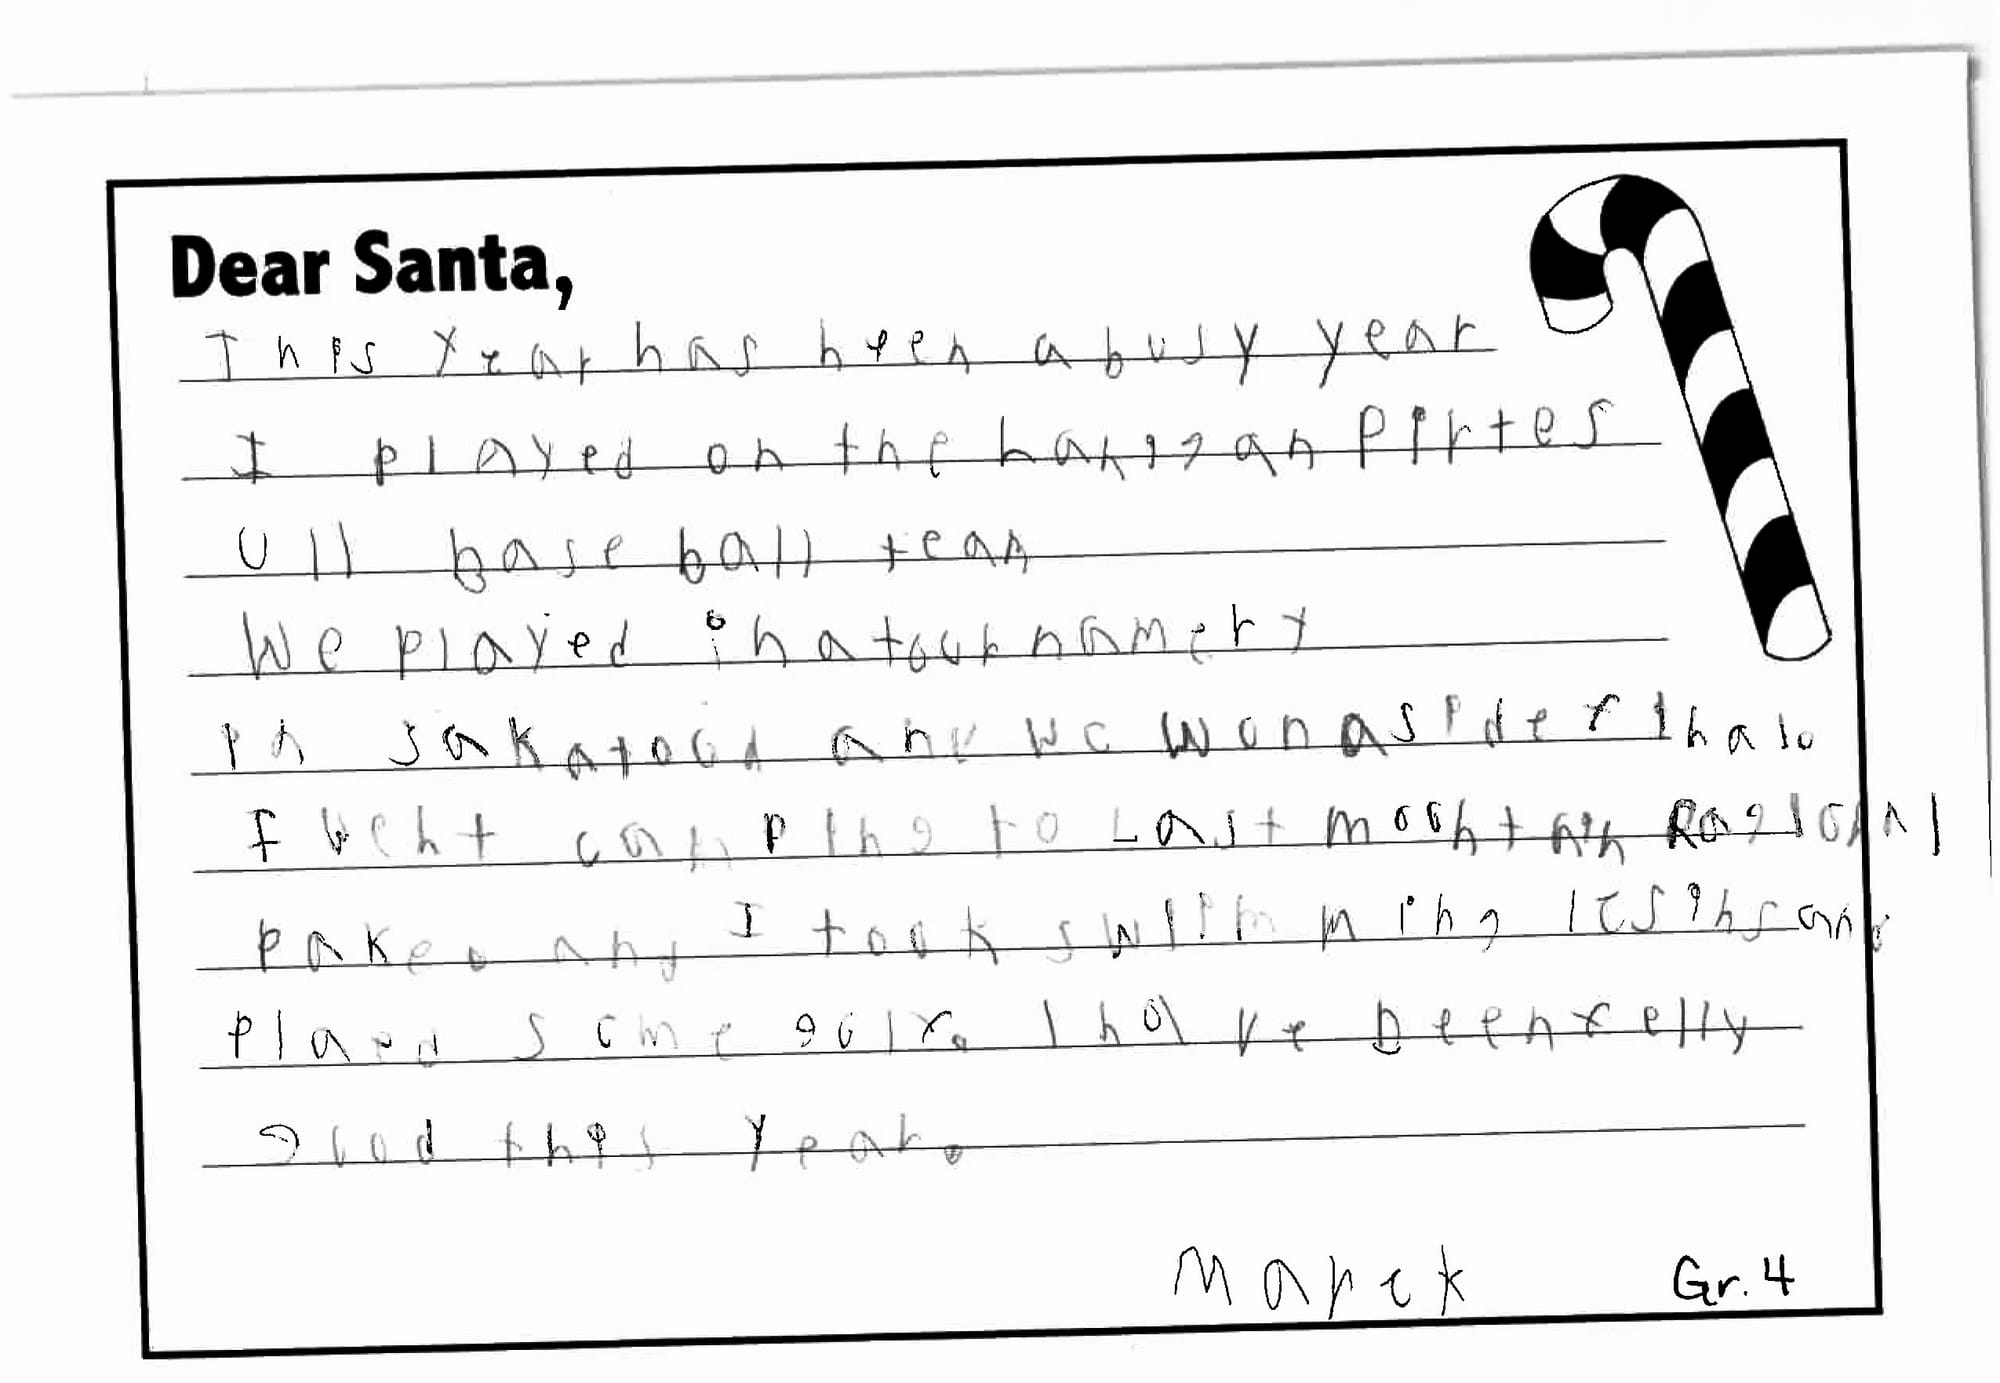 Dear Santa,
This Year has been a busy year
I played on the hanigan Pirtes
U11 base ball team
We played in a tournament
in sakatood and we won a
I went camping to Last mountain Ragional
Pake. and I took swimming
Plaed some golf. I have been relly
good this Year.
Marek Gr. 4